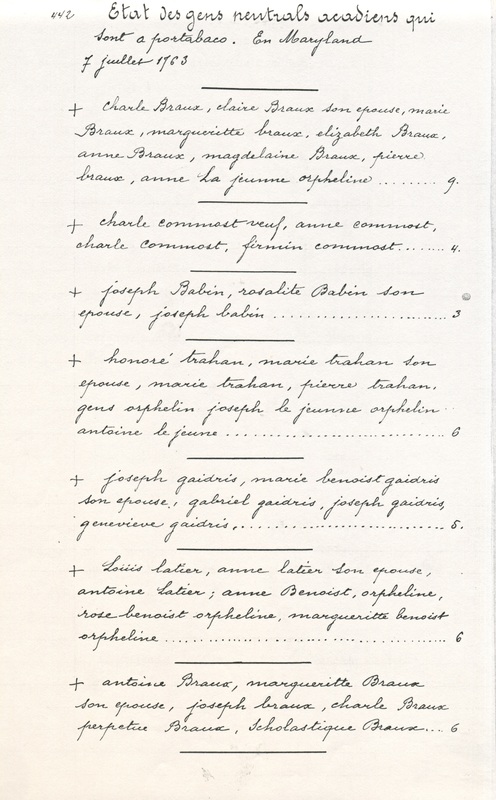 442 Etat des gens neutrals acadiens qui
sont a portabaco. En Maryland
7 juillet 1763
+ charle Braux, claire Braux son epouse, marie
Braux, margueritte braux, elizabeth Braux,
anne Braux, magdelaine Braux, pierre
braux, anne La jeunne orpheline ........ 9.
+ charle commost veuf, anne commost,
charle commost, firmin commost........ 4.
+ joseph Babin, rosalite Babin son
epouse, joseph babin ........................ 3
+ honoré trahan, marie trahan son
epouse, marie trahan, pierre trahan.
gens orphelin joseph le jeunne orphelin
antoine le jeune .............................. 6
+ joseph gaidris, marie benoist gaidris
son epouse, gabriel gaidris, joseph gaidris,
genevieve gaidris, ............................ 5.
+ Loüis latier, anne latier son epouse,
antoine latier; anne Benoist, orpheline,
rose benoist orpheline, margueritte benoist
orpheline ........................................ 6
+ antoine Braux, margueritte Braux
son epouse, joseph braux, charle Braux
perpetue Braux, Scholastique Braux.... 6